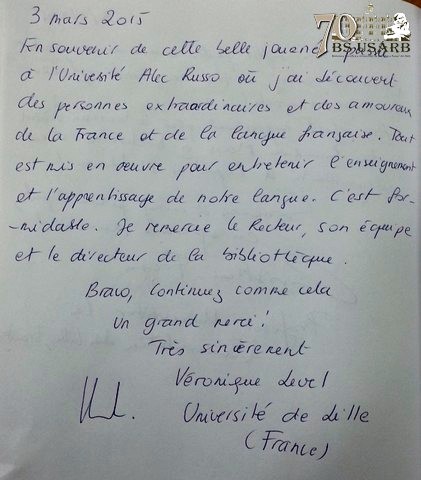 3 mars 2015
70
BS USARB
En souvenir de cette belle journée passée
à l'Université Alec Russo où j'ai découvert
des personnes extraordinaires et des amoureux
de la France et de la langue française. Tout
est mis en œuvre pour entretenir l'enseignement
et l'apprentissage de notre langue. C'est for-
-midable. Je remercie le Recteur, son équipe
et le directeur de la bibliothèque.
Bravo, continuez comme cela
un grand merci!
Très sincèrement
Véronique
Université de Lille
(France)